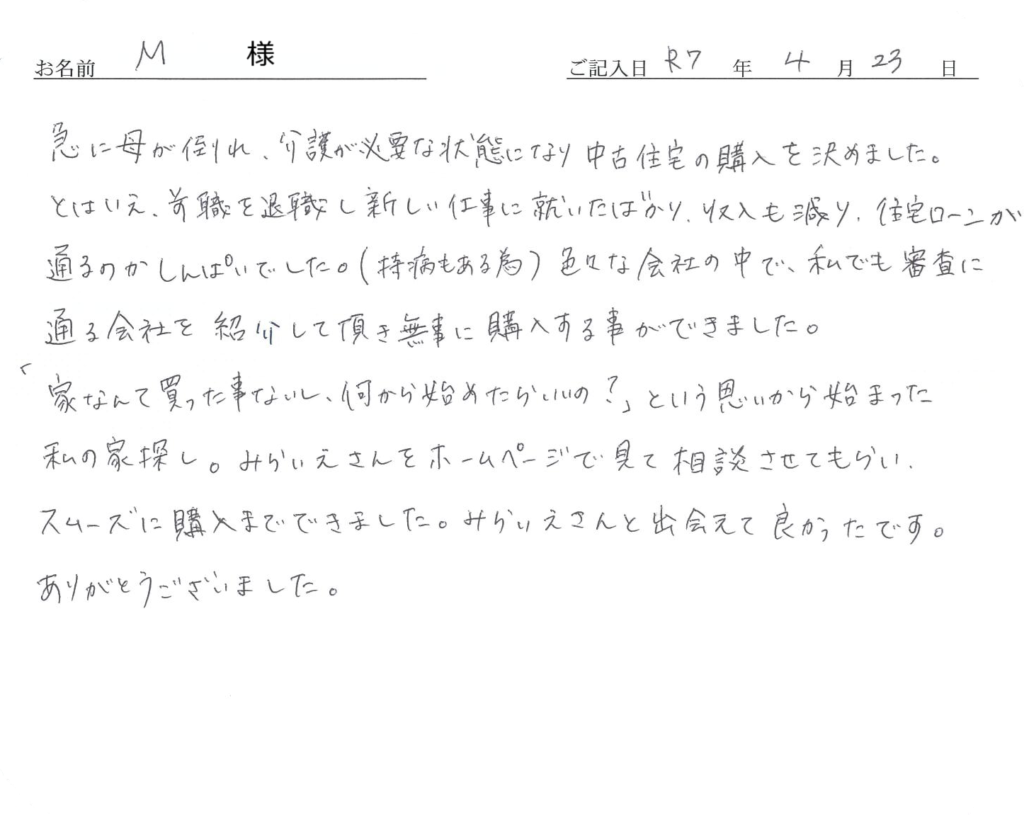 お名前 M 様 ご記入日 R7 年 4 月 23 日
急に母が倒れ、介護が必要な状態になり中古住宅の購入を決めました。
とはいえ、前職を退職し新しい仕事に就いたばかり、収入も減り、住宅ローンが
通るのかしんぱいでした。(持病もある為)色々な会社の中で、私でも審査に
通る会社を紹介して頂き無事に購入する事ができました。
「家なんて買った事ないし、何から始めたらいいの?」という思いから始まった
私の家探し。みらいえさんをホームページで見て相談させてもらい、
スムーズに購入までできました。みらいえさんと出会えて良かったです。
ありがとうございました。